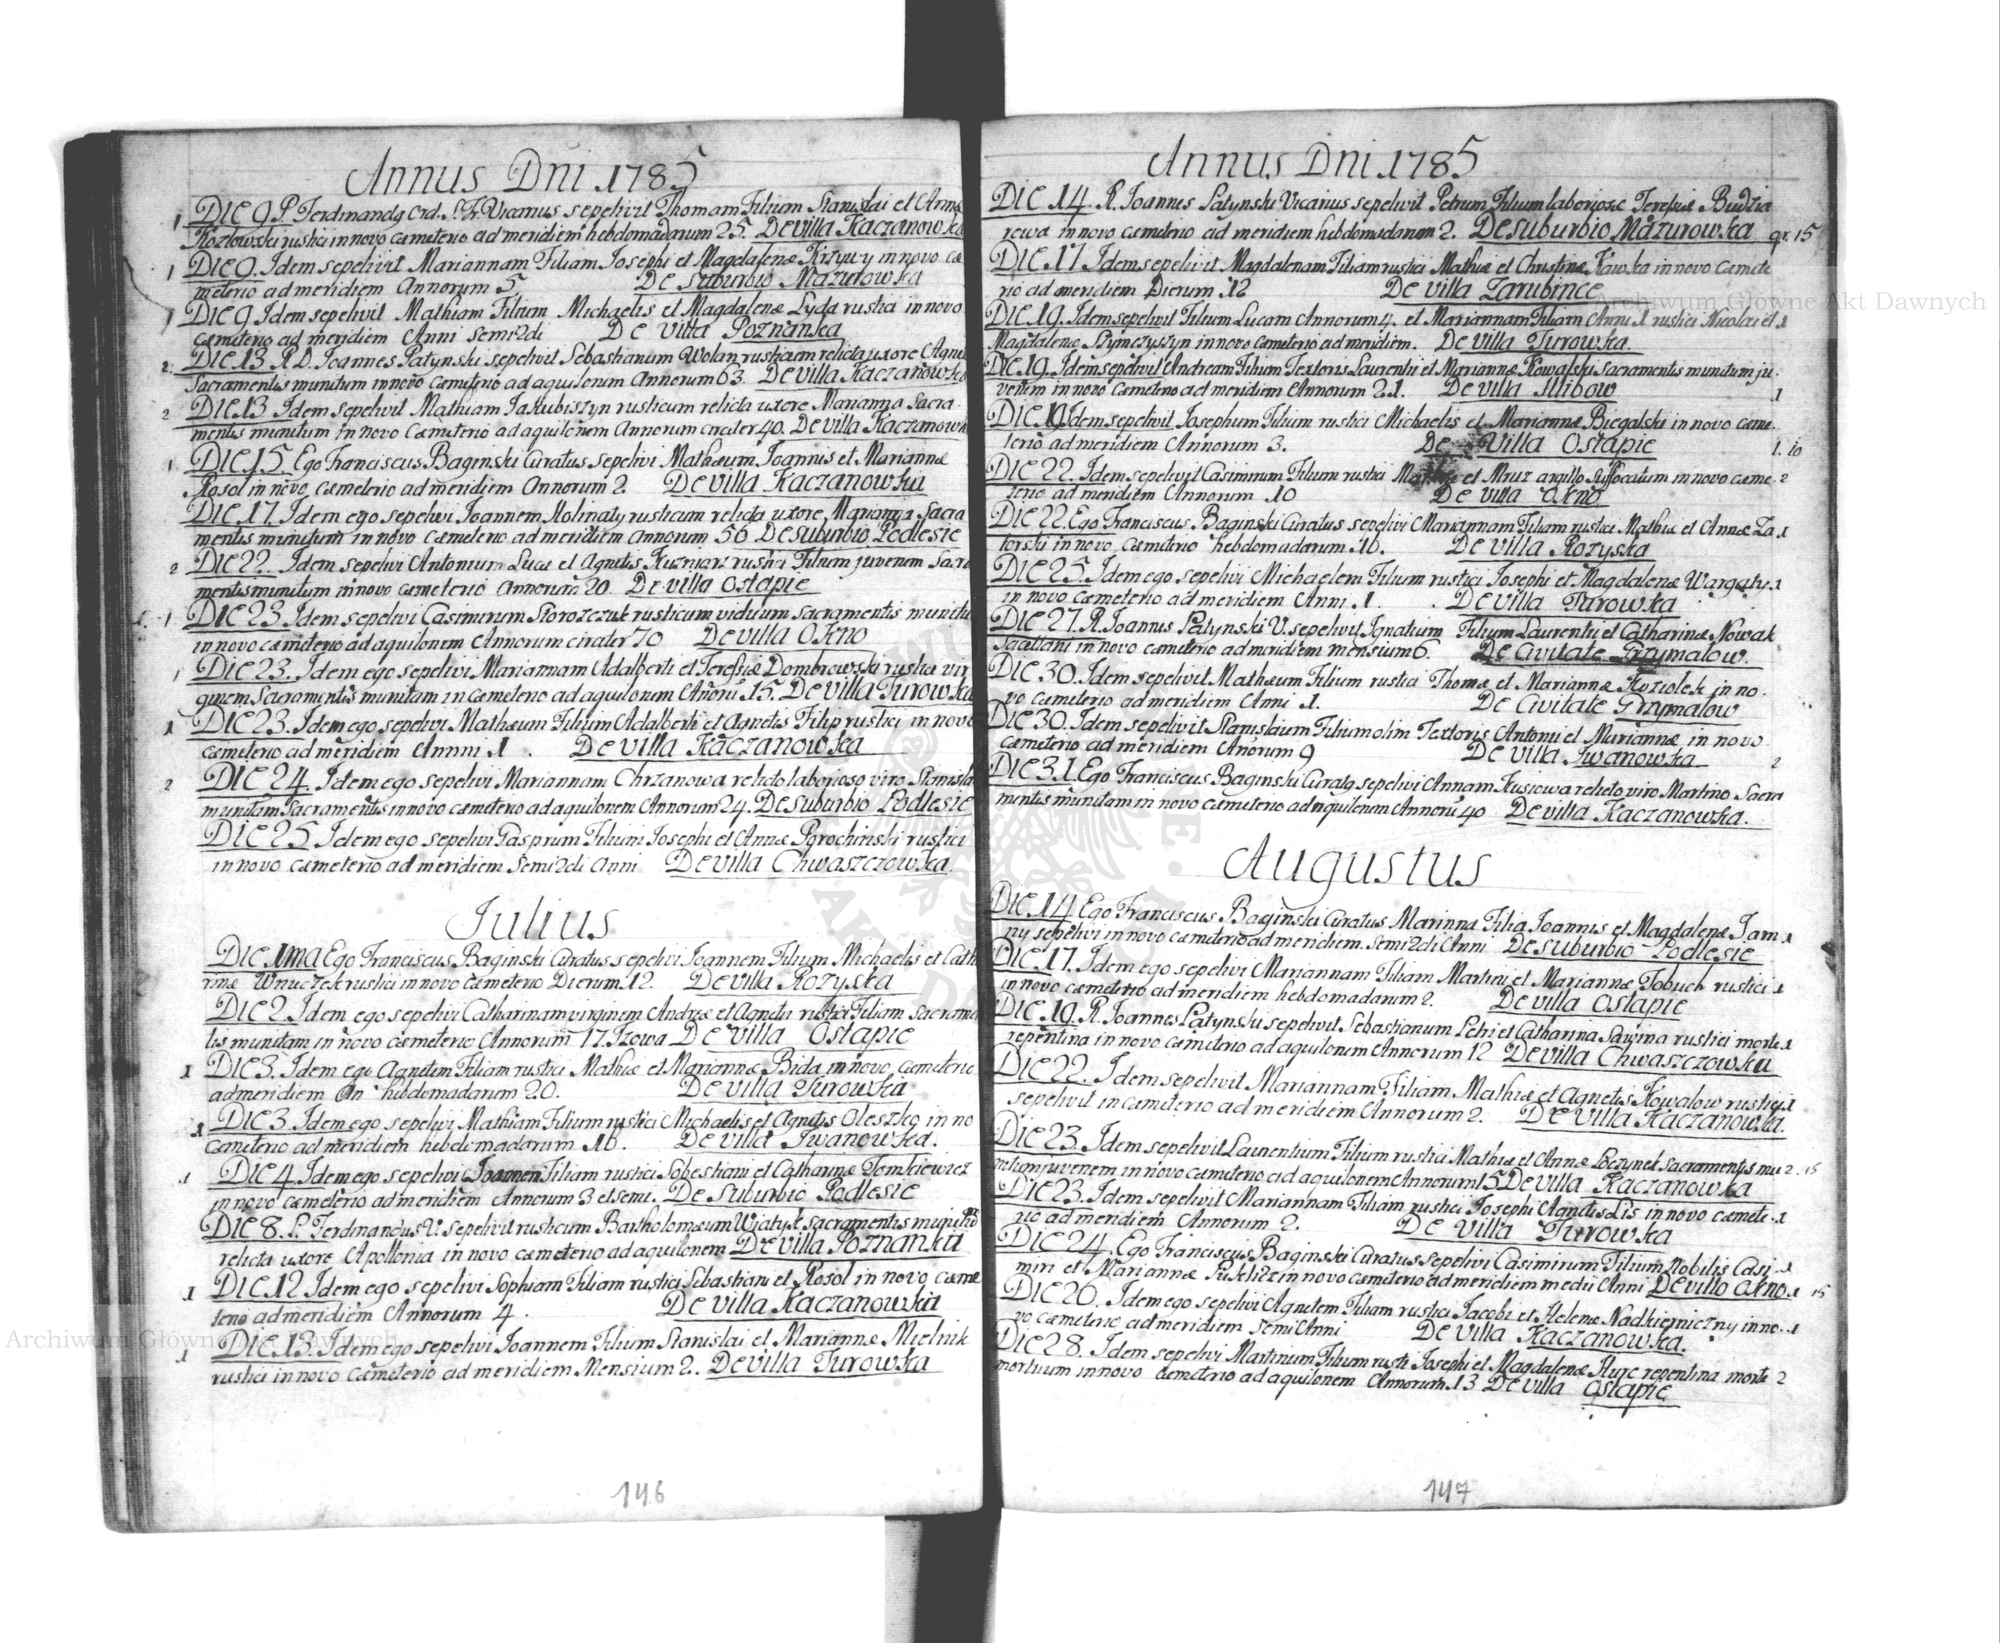 Annus Dni 1785
1 DIE 9 P. Ferdinandg Ord. S. F. Vicarius sepelivit Thomam Filium Stanislai et Annæ
Kozłowski rustici in novo cæmeterio ad meridiem hebdomadarum 25. De villa Kaczanowka
1 DIE 9. Idem sepelivit Mariannam Filiam Iosephi et Magdalenæ Krzywy in novo cæ
meterio ad meridiem Annorum 5 De Suburbio Mazurowka
1 DIE 9 Idem sepelivit Mathiam Filium Michaelis et Magdalenæ Lyda rustici in novo
cæmeterio ad meridiem Anni Semi2di De villa Poznanka
2. DIE 13 R. D. Ioannes Patynski sepelivit Sebastianum Wolan rusticum relicta uxore Agne
Sacramentis munitum in novo Cæmeterio ad aquilonum Annorum 63. De villa Kaczanowka
2 DIE 13 Idem sepelivit Mathiam Iakubiszyn rusticum relicta uxore Marianna Sacra
mentis munitum in novo Cæmeterio ad aquilonem Annorum circiter 40. De villa Kaczanowk
1 DIE 15. Ego Franciscus Baginski Curatus sepelivi Mathæum Ioannis et Mariannæ
Rosol in novo cæmeterio ad meridiem Annorum 2 De villa Kaczanowka
DIE 17. Idem ego sepelivi Ioannem Molinaty rusticum relicta uxore Marianna Sacra
mentis munitum in novo Cæmeterio ad meridiem annorum 56 De suburbio Podlesie
2 DIE 22. Idem sepelivi Antonium Lucæ et Agnetis Kuzniarz rustici Filium juvenem Sacra
mentis munitum in novo cæmeterio Annorum 20. De villa Ostapie
1 DIE 23 Idem sepelivi Casimirum Storozczuk rusticum viduum Sacramentis munitu
in novo cæmeterio ad aquilonem Annorum circiter 70 De villa Okno
1 DIE 23. Idem ego sepelivi Mariannam Adalberti et Teressiæ Dombrowski rustici vir
ginem Sacramentis munitam in cæmeterio ad aquilonem Añoru 15. De villa Turowka
1 DIE 23. Idem ego sepelivi Mathæum Filium Adalberti et Agnetis Filip rustici in novo
cæmeterio ad meridiem Annni 1. De villa Kaczanowka
2 DIE 24. Idem ego sepelivi Mariannam Chrzanowa relicto laborioso viro Stanisla
munitam Sacramentis in novo cæmeterio ad aquilonem Annorum 24. De suburbio Podlesie
DIE 25. Idem ego sepelivi Gasprum Filium Iosephi et Annæ Pgrochinski rustici
in novo cæmeterio ad meridiem Semi2di Anni De villa Chwaszczowka.
Iulius
DIE 1ma Ego Franciscus Baginski Curatus sepelivi Ioannem Filium Michaelis et Cath
rinæ Wnuczek rustici in novo Cæmeterio Dierum 12. De villa Rozyska
DIE 2. Idem ego sepelivi Catharinam virginem Andreæ et Agnetis rustici Filiam Sacrame
tis munitam in novo cæmeterio Annorum 17 Izowa De villa Ostapie
1 DIE 3. Idem ego Agnetim Filiam rustici Mathiæ et Mariannæ Bida in novo cæmeterio
ad meridiem hebdomadarum 20. De villa Turowka
1 DIE 3 Idem ego sepelivi Mathiam Filium rustici Michaelis et Agnetis Oleszko in no
Cæmeterio ad meridiem hebdomadarum 16. De villa Iwanowka.
1 DIE 4. Idem ego sepelivi Filiam rustici Sebestiani et Catharinæ Tomkiewicz
in novo cæmeterio ad meridiem Annorum 3 et semi. De Suburbio Podlesie
DIE 8. P. Ferdinandus V. sepelivit rusticum Bartholomæum Wiatyk sacramentis munitu
relicta uxore Apollonia in novo cæmeterio ad aquilonem De villa Poznanka
1 DIE 12 Idem ego sepelivi Sophiam Filiam rustici Sebastiani et Rosol in novo cæme
terio ad meridiem Annorum 4. De villa Kaczanowka
1 DIE 13. Idem ego sepelivi Ioannem Filium Stanislai et Mariannæ Mielnik
rustici in novo Cæmeterio ad meridiem Mensium 2. De villa Turowka
146
Annus Dni 1785
DIE 14. R. Ioannes Patynski Vicarius sepelivit Petrum Filium laboriosæ Teressiæ Budzia
rowa in novo cæmeterio ad meridiem hebdomadarum 2. De suburbio Mazurowka gr. 15
DIE 17 Idem sepelivit Magdalenam Filiam rustici Mathiæ et Christinæ Kawka in novo Cæmete
rio ad meridiem Dierum 12 De villa Zarubince
DIE 19. Idem sepelivit Filium Lucam Annorum 4. et Mariannam Filiam Anni 1 rustici Nicolai et 1
Magdalenæ Szymczyszyn in novo cæmeterio ad meridiem. De villa Turowka.
DIE 19. Idem sepelivit Andream Filium Textoris Laurentii et Mariannæ Kowalski sacramentis munitum ju
venem in novo Cæmeterio ad meridiem Annorum 21. De villa Illibow 1
DIE Idem sepelivit Iosephum Filium rustici Michaelis et Mariannæ Biegalski in novo cæme
terio ad meridiem Annorum 3. De Villa Ostapie 1. 10
DIE 22. Idem sepelivit Casimirum Filium rustici et Mruz argillo suffocatum in novo cæme 2
terio ad meridiem Annorum 10 De villa Okno
DIE 22. Ego Franciscus Baginski Curatus sepelivi Mariannam Filiam rustici Mathiæ et Annæ Za 1
torski in novo cæmeterio hebdomadarum 16. De villa Rozyska
DIE 25. Idem ego sepelivi Michaelem Filium rustici Iosephi et Magdalenæ Wargaty 1
in novo Cæmeterio ad meridiem Anni 1. De villa Turowka
DIE 27. R. Ioannes Patynski V. sepelivit Ignatium Filium Laurentii et Catharinæ Nowak
Sacellani in novo cæmeterio ad meridiem mensium 6. De Civitate Grzymalow.
DIE 30. Idem sepelivit Mathæum Filium rustici Thomæ et Mariannæ Koziolek in no
vo cæmeterio ad meridiem Anni 1. De Civitate Grzymalow
DIE 30. Idem sepelivit Stanislaum Filium olim Textoris Antonii et Mariannæ in novo
cæmeterio ad meridiem Anorum 9 De villa Iwanowka 2
DIE 31. Ego Franciscus Baginski Curatg sepelivi Annam Kusiowa relicto viro Martino Sacra
mentis munitam in novo cæmeterio ad aquilonem Annorū 40 De villa Kaczanowka.
Augustus
DIE 14 Ego Franciscus Baginski Curatus Marinna Filia Ioannis et Magdalenæ Jam
ny sepelivi in novo cæmeterio ad meridiem. Semi2di Anni De suburbio Podlesie 1
DIE 17. Idem ego sepelivi Mariannam Filiam Martini et Mariannæ Tobuch rustici 1
in novo cæmeterio ad meridiem hebdomadarum 2. De villa Ostapie
DIE 19. R. Ioannes Patynski sepelivit Sebastianum Petri et Catharina Sawina rustici morte 1
repentina in novo cæmeterio ad aquilonem Annorum 12 De villa Chwaszczowka
DIE 22. Idem sepelivit Mariannam Filiam Mathiæ et Agnetis Kowalow rustici 1
sepelivit in cæmeterio ad meridiem Annorum 2. De Villa Kaczanowka.
DIE 23. Idem sepelivit Laurentium Filium rustici Mathiæ et Annæ Poczynek sacramentis mu 2. 15
nitum juvenem in novo cæmeterio ad aquilonem Annorum 15 De villa Kaczanowka
DIE 23. Idem sepelivit Mariannam Filiam rustici Iosephi Agnetis Lis in novo cæmete 1
rio ad meridiem Annorum 2. De villa Turowka
DIE 24. Ego Franciscus Baginski Curatus sepelivi Casimirum Filium Nobilis Casi 1
miri et Mariannæ in novo cæmeterio ad meridiem medii Anni De villa Okno 1 15
DIE 26. Idem ego sepelivi Agnetem Filiam rustici Iacobi et Helenæ Nadkierniczny in no 1
vo cæmeterio ad meridiem semi Anni De villa Kaczanowka.
DIE 28. Idem sepelivi Martinum Filium rusti Iosephi et Magdalenæ Huic repentina morte 2
mortuum in novo cæmeterio ad aquilonem Annorum 13 De villa Ostapie
147
Archiwum Główne Akt Dawnych
Archiwum Główne Akt Dawnych